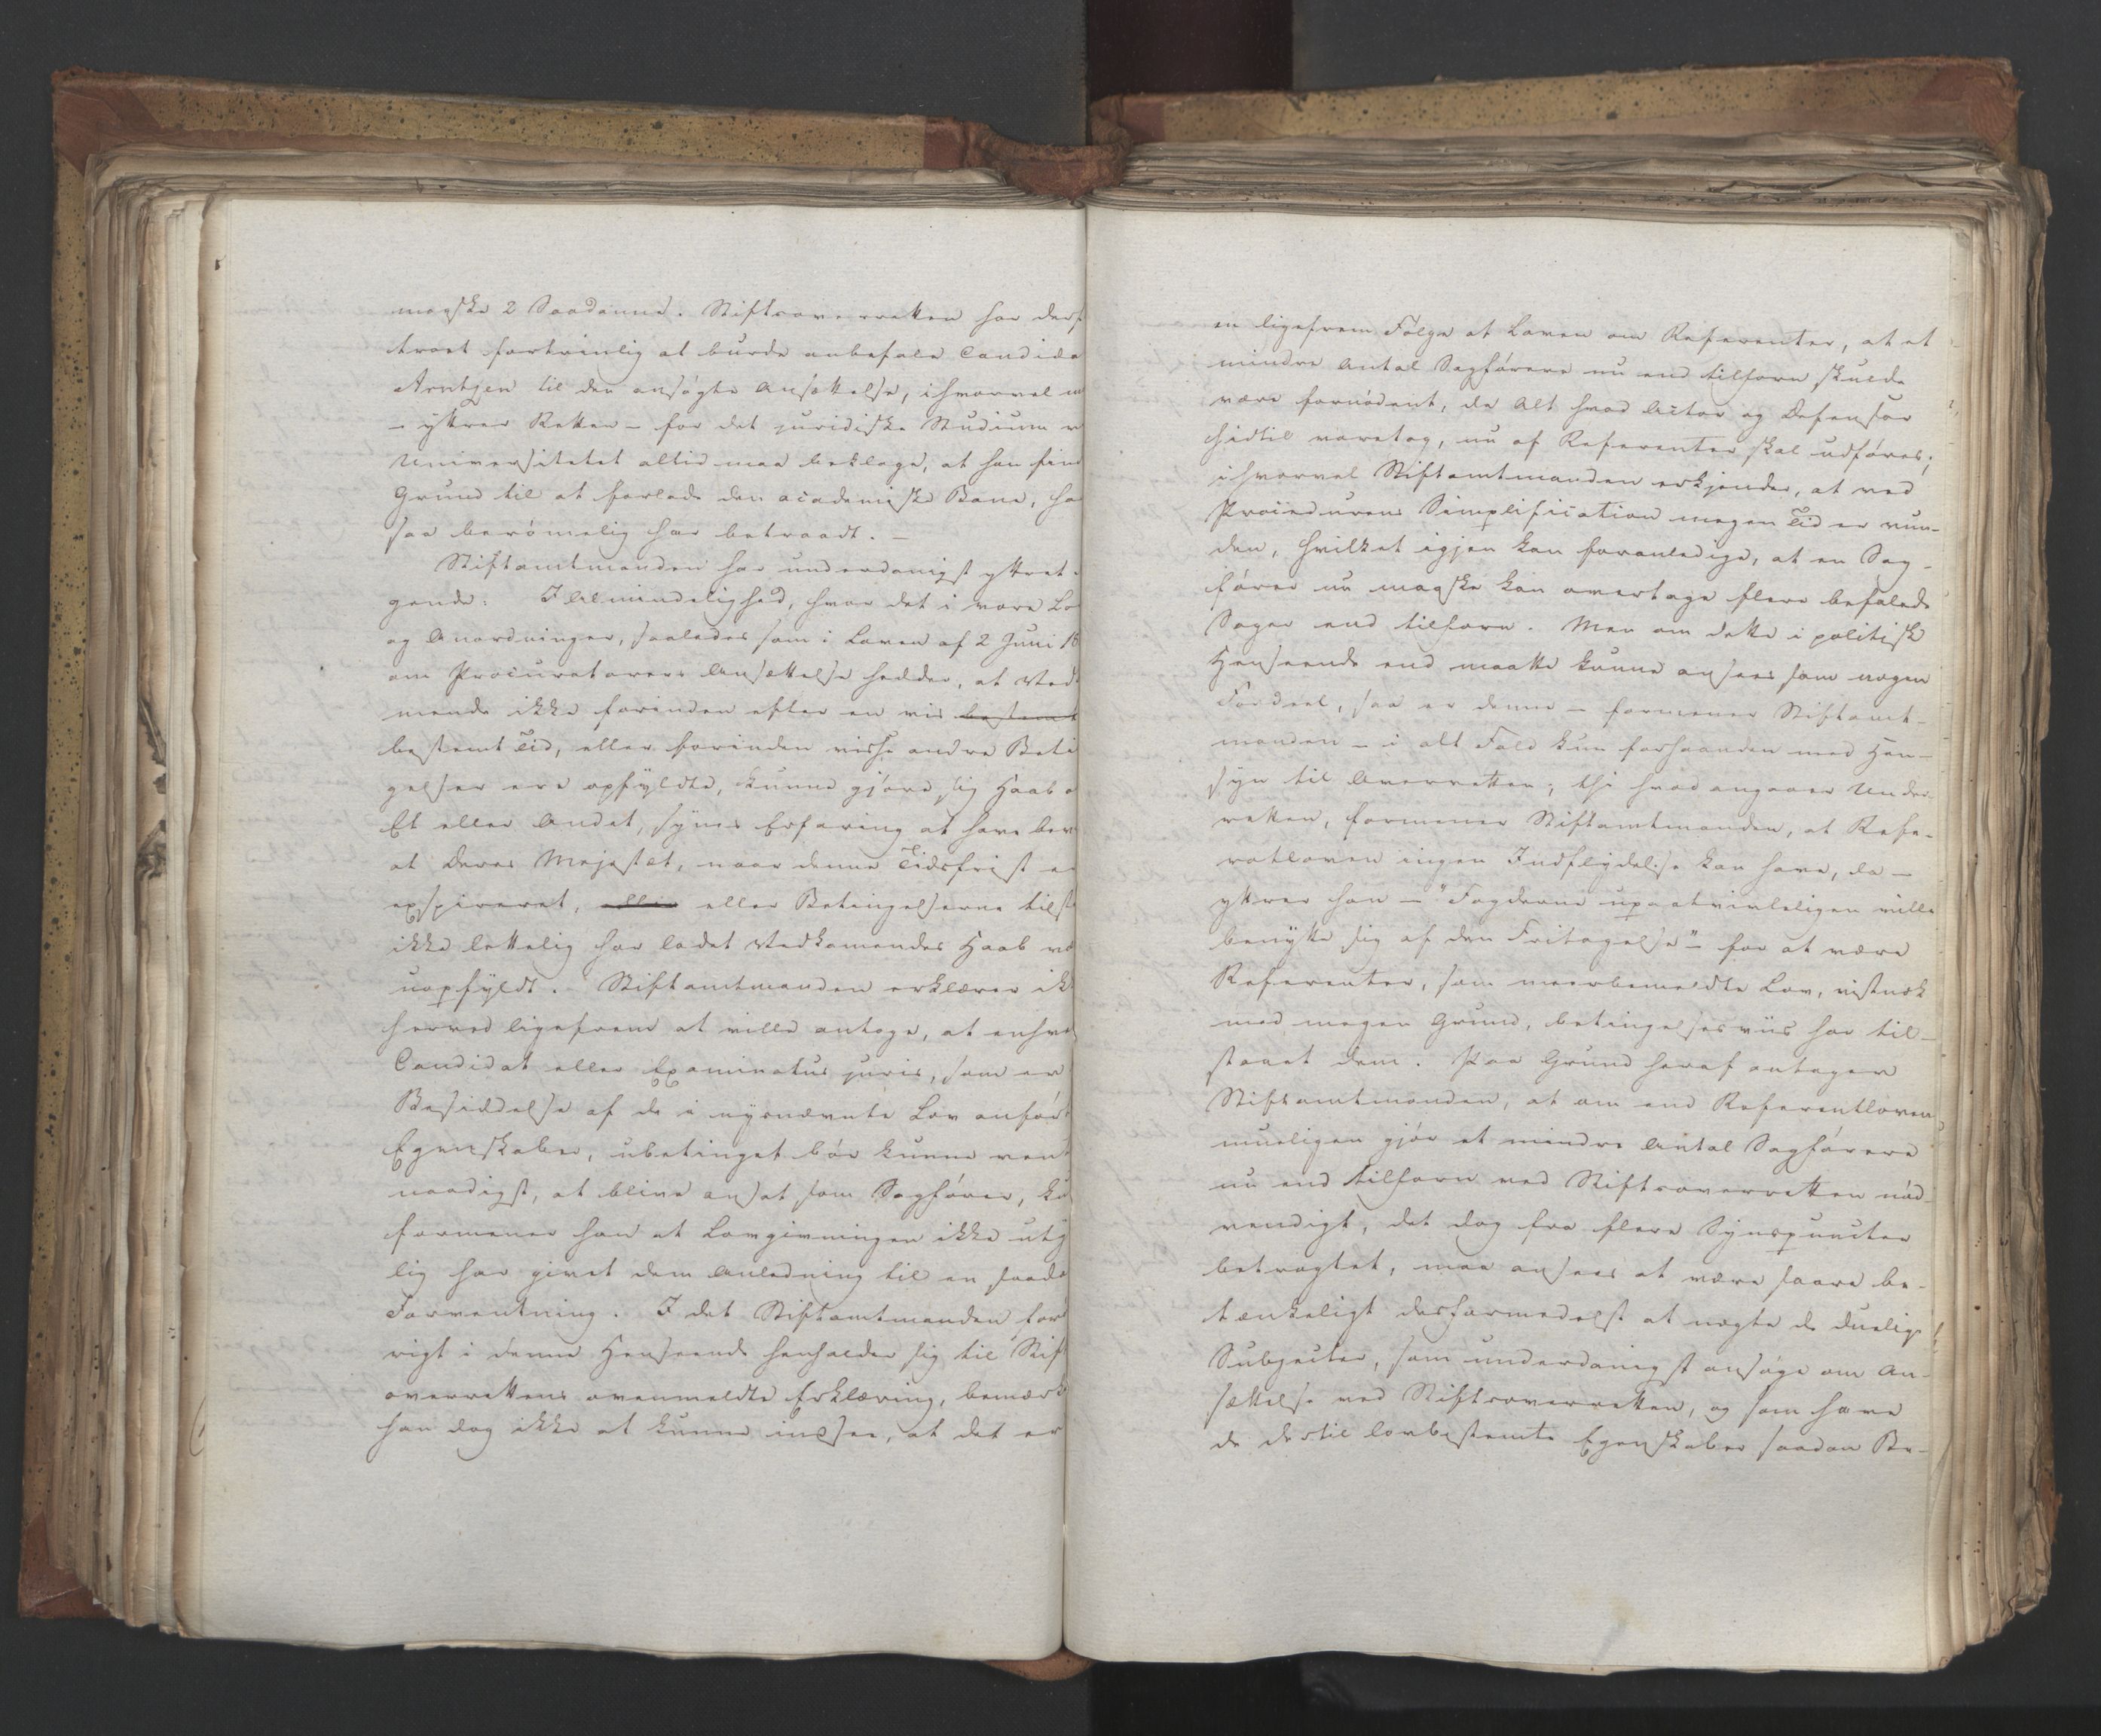 maaske 2 Saadanne. Stiftsoverretten har derf
troet fortrinlig at burde anbefale Candida
Arntzen til den ansøgte Ansættelse, ihvorvel m
– yttrer Retten – for det juridiske Studium v
Universitetet altid maa beklage, at han find
Grund til at forlade den academiske Bane, ha
saa berømmelig har betraadt. –
Stiftamtmanden har underdanigst yttret
gende: I Almindelighed, hvor det i vore Lo
og Anordninger, saaledes som i Loven af 2 Juni 18
om Procuratorers Ansættelse hedder, at Ved
mende ikke forinden efter en vis bestemt
bestemt Tid, eller forinden visse andre Beti
gelser ere opfyldte, kunne gjøre sig Haab o
Et eller Andet, synes Erfaring at have bev
at Deres Majestæt, naar denne Tidsfrist e
exspireret, eller eller Betingelserne tilst
ikke lettelig har ladet Vedkomendes Haab væ
uopfyldt. Stiftamtmanden erklærer ik
herved ligefrem at ville antage, at enhv
Candidat eller Examinatus juris, som er
Besiddelse af de i nysnævnte Lov anfør
Egenskaber, ubetinget bør kunne vent
naadigst, at blive ansat som Sagfører, ku
formener han at Lovgivningen ikke uty
lig har givet dem Anledning til en saada
Forventning. I det Stiftamtmanden for
rigt i denne Henseende henholder sig til Stif
overrettens ovenmeldte Erklæring, bemærk
han dog ikke at kunne indsee, at det er
en ligefrem Følge at Loven om Referenter, at et
mindre Antal Sagførere nu end tilforn skulde
være fornødent, da Alt hvad Actor og Defensor
hidtil varetog, nu af Referenter skal udføres;
ihvorvel Stiftamtmanden erkjender, at ved
Procedurens Simplification megen Tid er vun-
den, hvilket igjen kan foranledige, at en Sag-
fører nu maaske kan overtage flere befalede
Sager end tilforn. Men om dette i politisk
Henseende end maatte kunne ansees som nogen
Fordeel, saa er denne – formener Stiftamt-
manden – i alt Fald kun forhaanden med Hen-
syn til Overretten; thi hvad angaaer Under-
retten, formener Stiftamtmanden, at Refe-
ratloven ingen Indflydelse kan have, da –
yttrer han – "Fogderne upaatvivleligen ville
benytte sig af den Fritagelse" – for at være
Referenter, som meerbemeldte Lov, vistnok
med megen Grund, betingelsesviis har til-
staaet dem. Paa Grund heraf antager
Stiftamtmanden, at om end Referentloven
mueligen gjør et mindre Antal Sagførere
nu end tilforn ved Stiftsoverretten nød-
vendigt, det dog fra flere Synspuncter
betragtet, maa ansees at være saare be-
tænkeligt desformedelst at nægte de duelige
Subjecter, som underdanigst ansøge om An-
sættelse ved Stiftsoverretten, og som have
de dertil lovbestemte Egenskaber saadan Be-